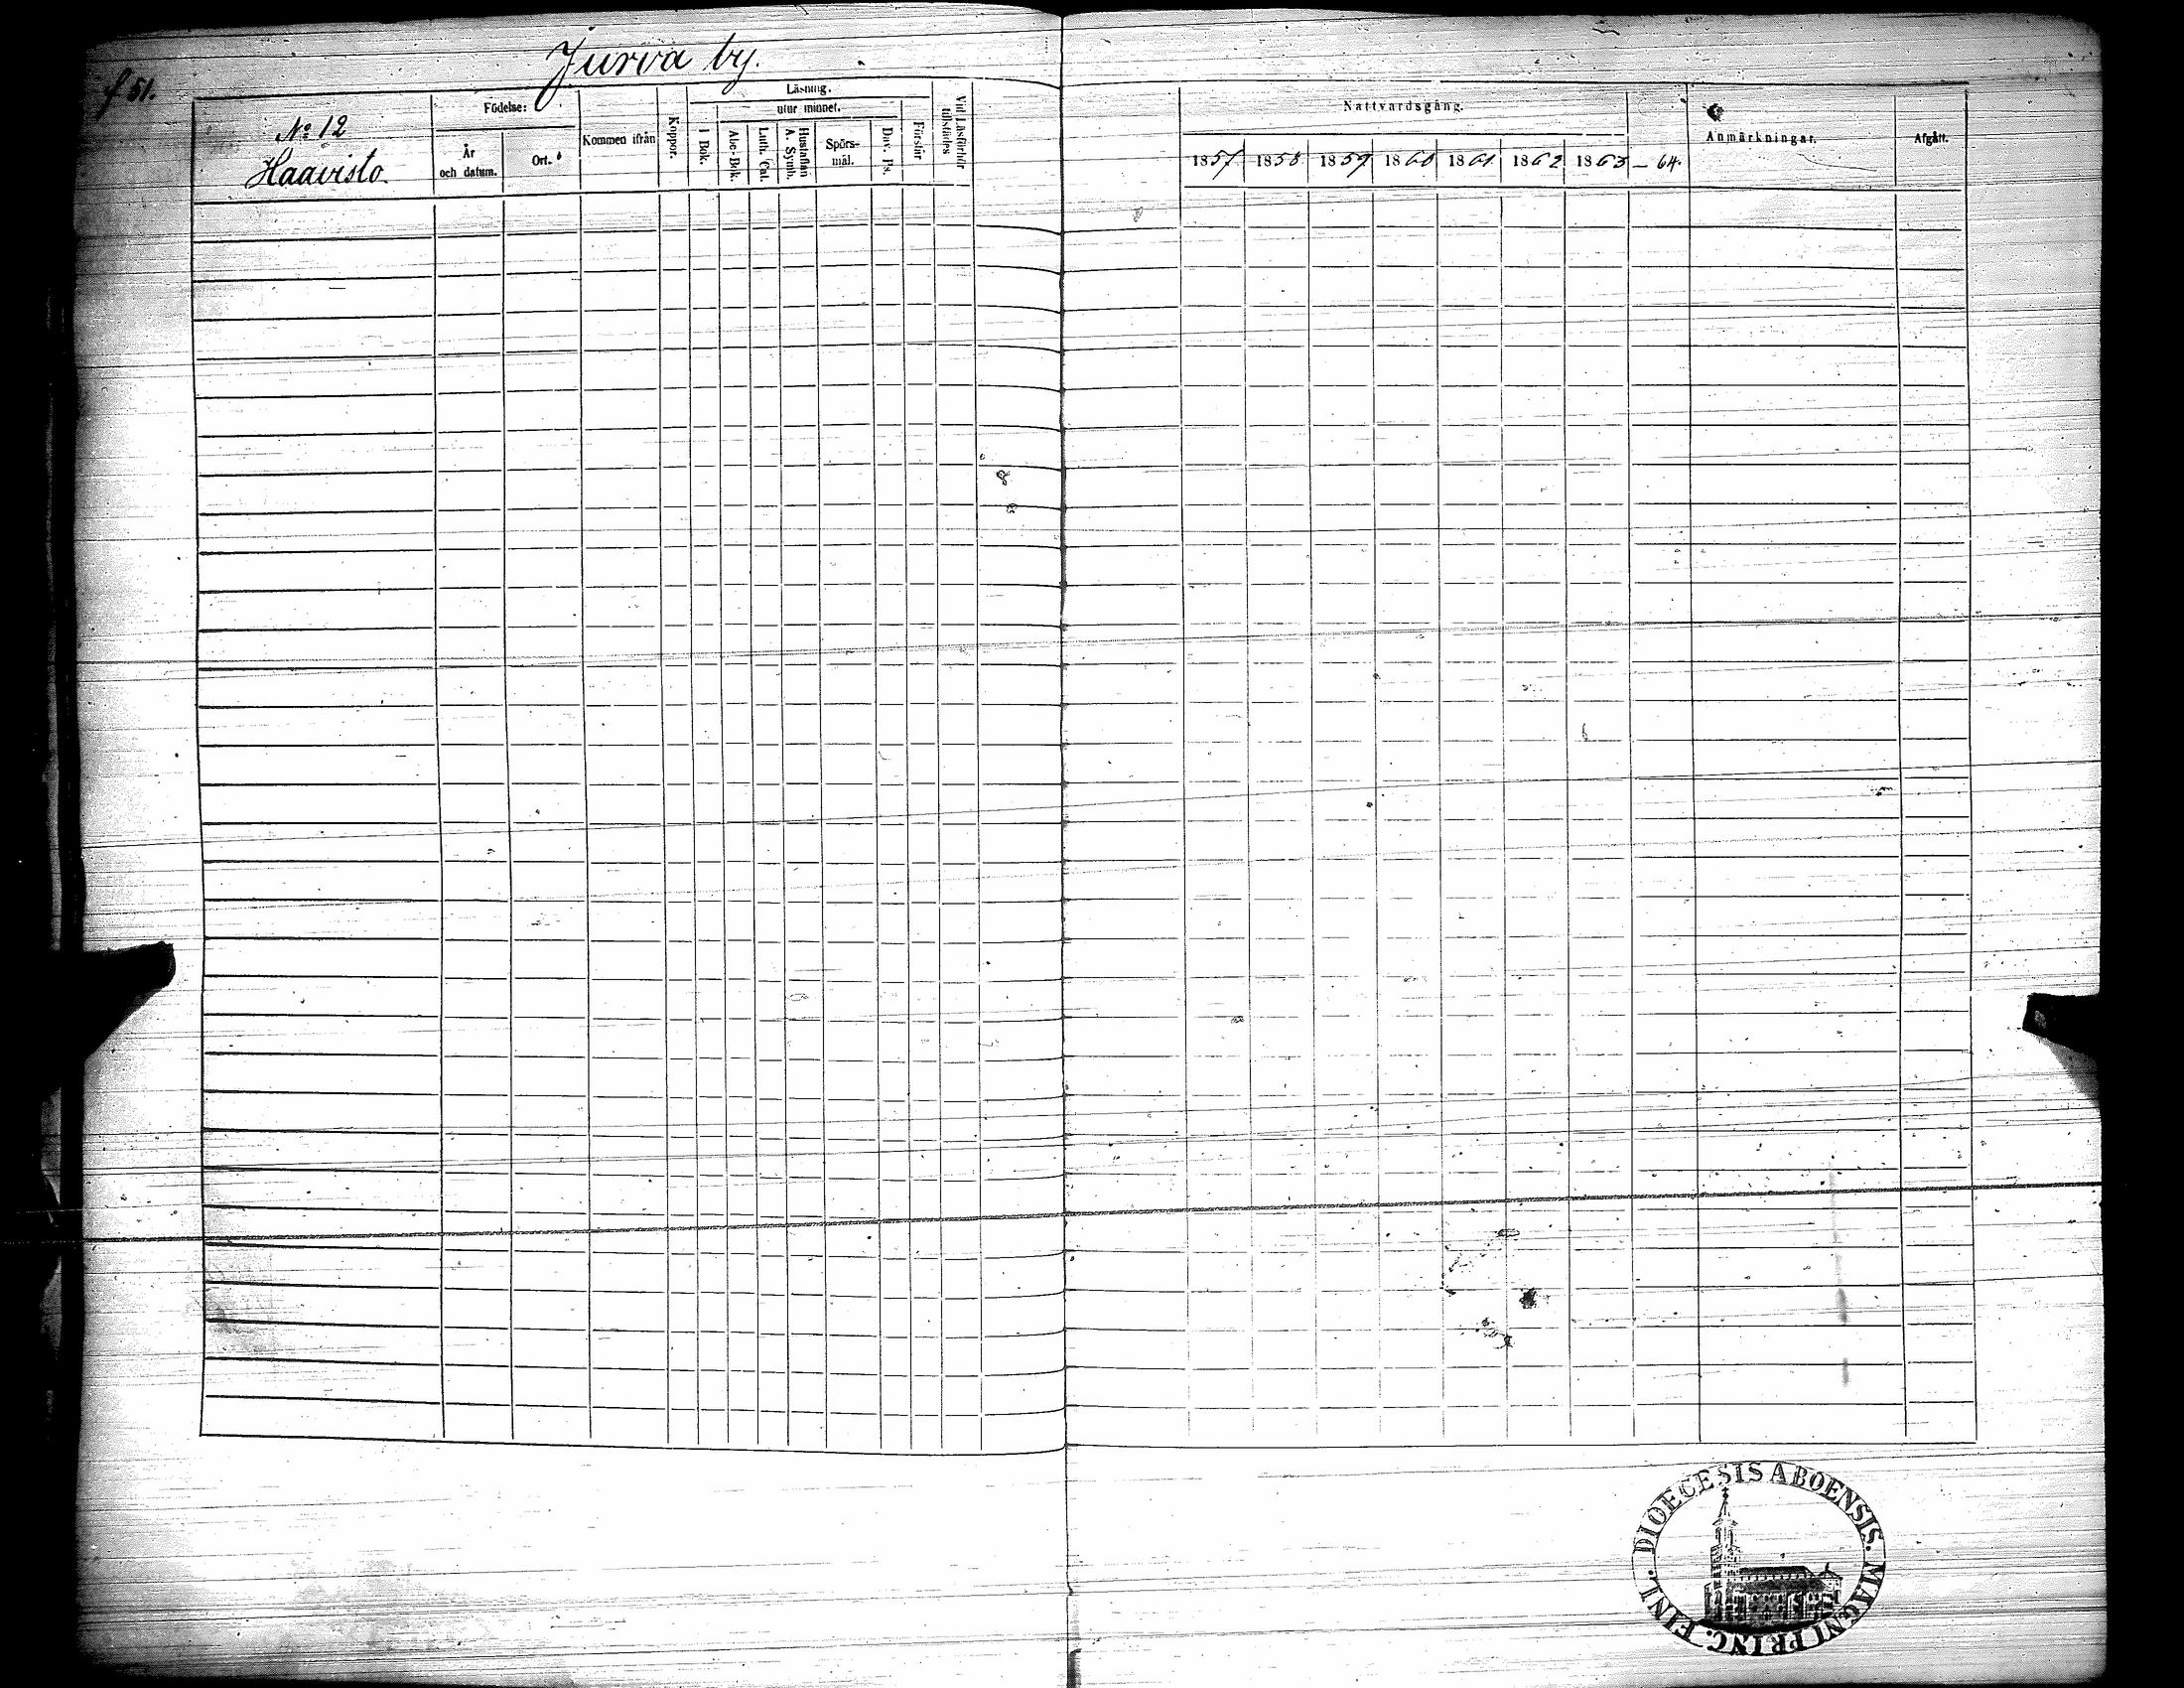 Jurva by.
f 51.
No 12
Haavisto.
Födelse:
År
och datum.
Ort.
Kommen ifrån
Koppor.
Läsning.
utur minnet.
I Bok.
Abc-Bok.
Luth. Cat.
Hustaflan
A. Symb.
Spörs-
mål.
Dav. Ps.
Förstår
Vid Läsförhör
tillstädes
Nattvardsgång.
1857 1858 1859 1860 1861 1862 1863 - 64.
Anmärkningar.
Afgått.
DIOECESIS ABOENSIS. MAGNI PRINC. FINL.